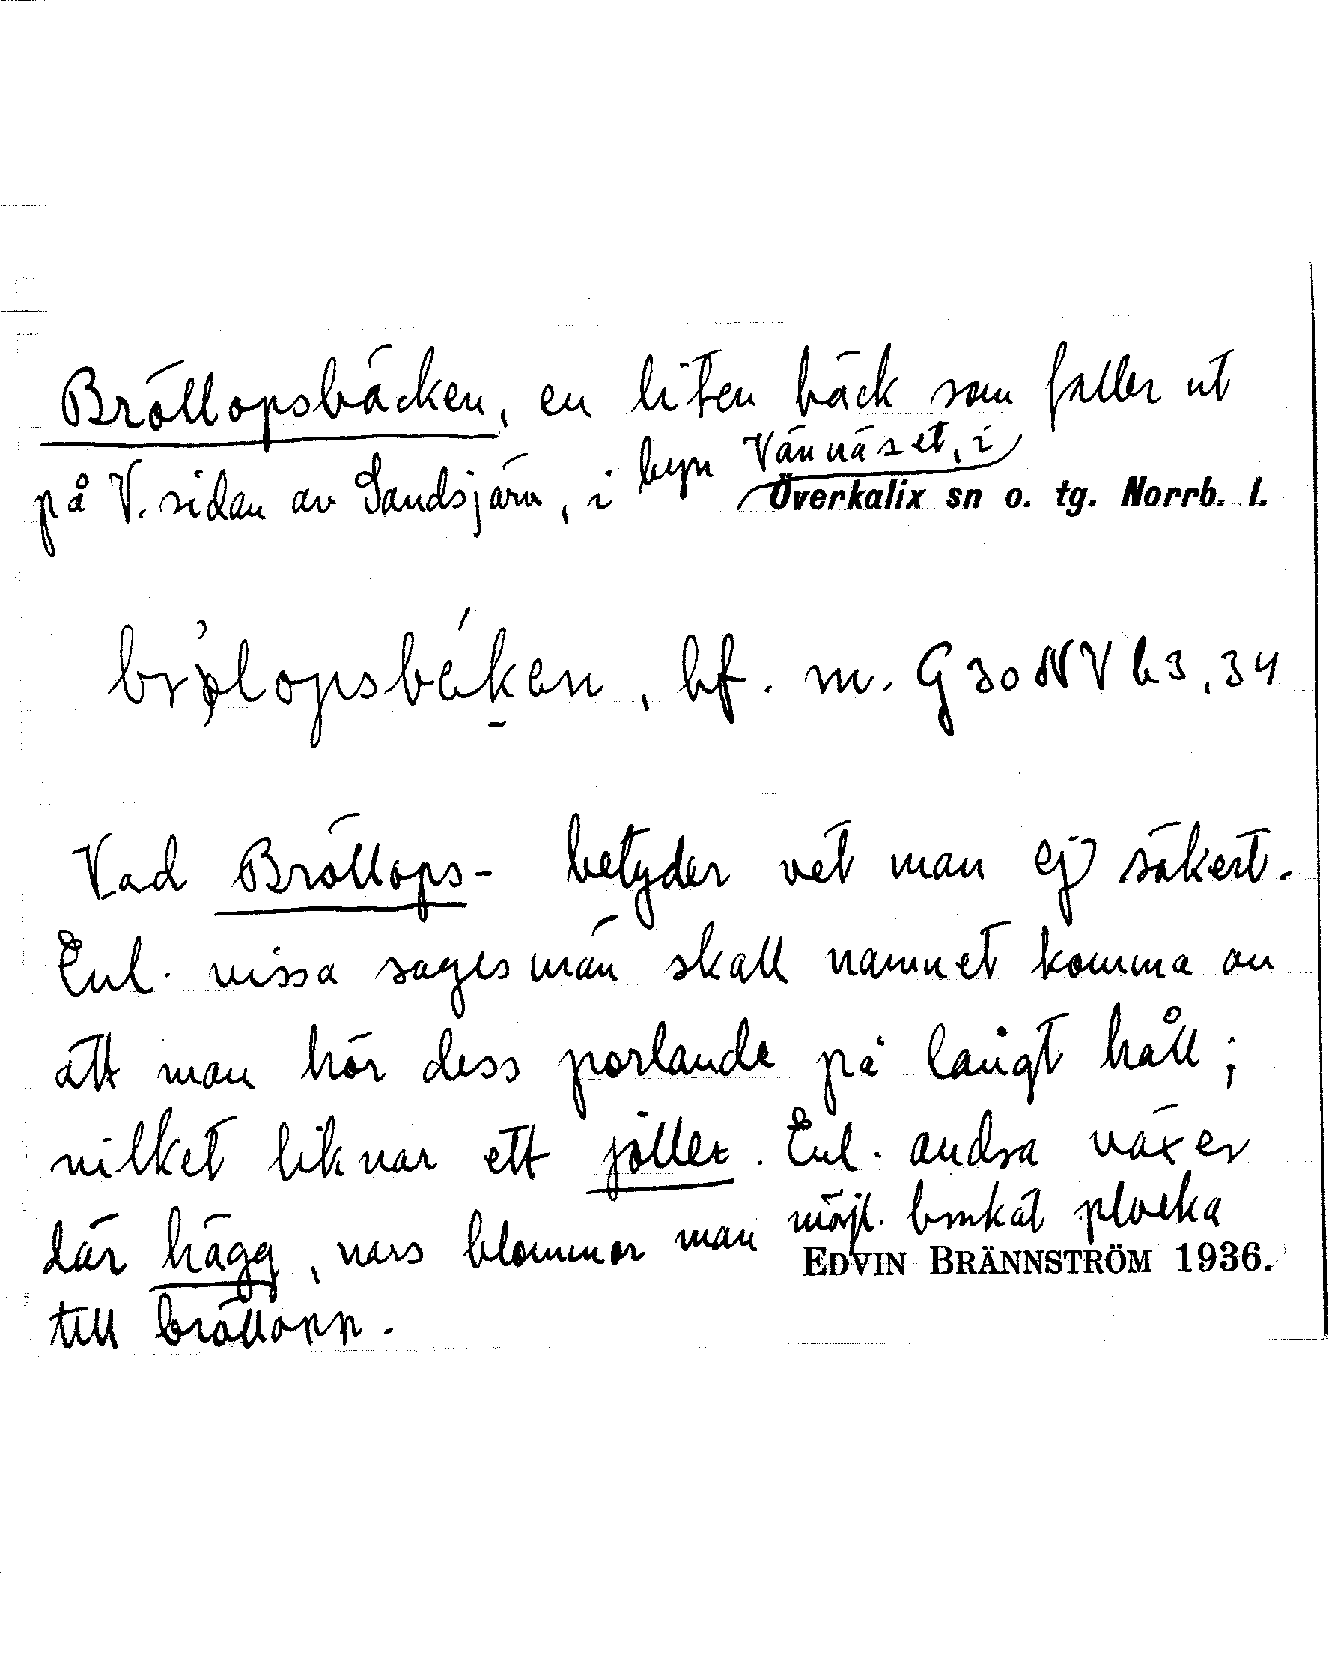 Bröllopsbäcken, en liten bäck som faller ut
på V. sidan av Sandsjärv, i byn Vännäset, i
Överkalix sn o. tg. Norrb. l.
bf. m. G 30 NV b3, 34
Vad Bröllops- betyder vet man ej säkert.
Enl. vissa sagesmän skall namnet komma av
att man hör dess porlande på långt håll;
vilket liknar ett jöller. Enl. andra växer
där hägg, vars blommor man möjl. brukat plocka
EDVIN BRÄNNSTRÖM 1936.
till bröllopp.